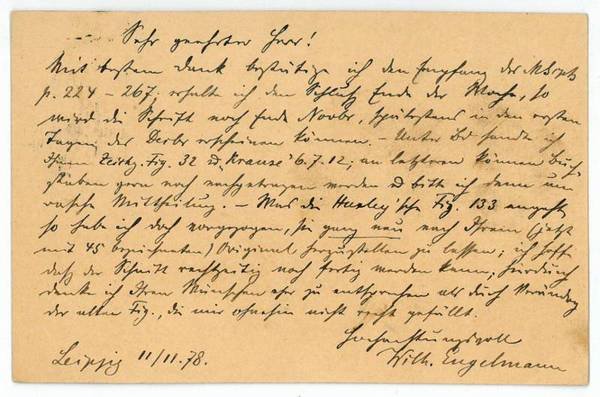 Sehr geehrter Herr!
Mit bestem Dank bestätige ich den Empfang des MSrpts
p. 224 – 267; erhalte ich den Schluß Ende der Woche, so
wird die Schrift noch Ende Novbr, spätestens in den ersten
Tagen des Decbr erscheinen können. – Unter Bd sende ich
Ihnen Fig. 32 u „Krause" 6. 7. 12; an letzteren können Buch-
staben gern noch nachgetragen werden u bitte ich dann um
rasche Mittheilung. – Was die Huxley'sche Fig. 133 angeht,
so habe ich doch vorgezogen, sie ganz neu nach Ihrem (jetzt
mit 45 bezeichneten) Original herzustellen zu lassen; ich hoffe
daß der Schnitt rechtzeitig noch fertig werden kann, hierdurch
denke ich Ihren Wünschen eher zu entsprechen als durch Veränderg
der alten Fig., die mir ohnehin nicht recht gefällt.
Hochachtungsvoll
Leipzig 11/11. 78. Wilh. Engelmann